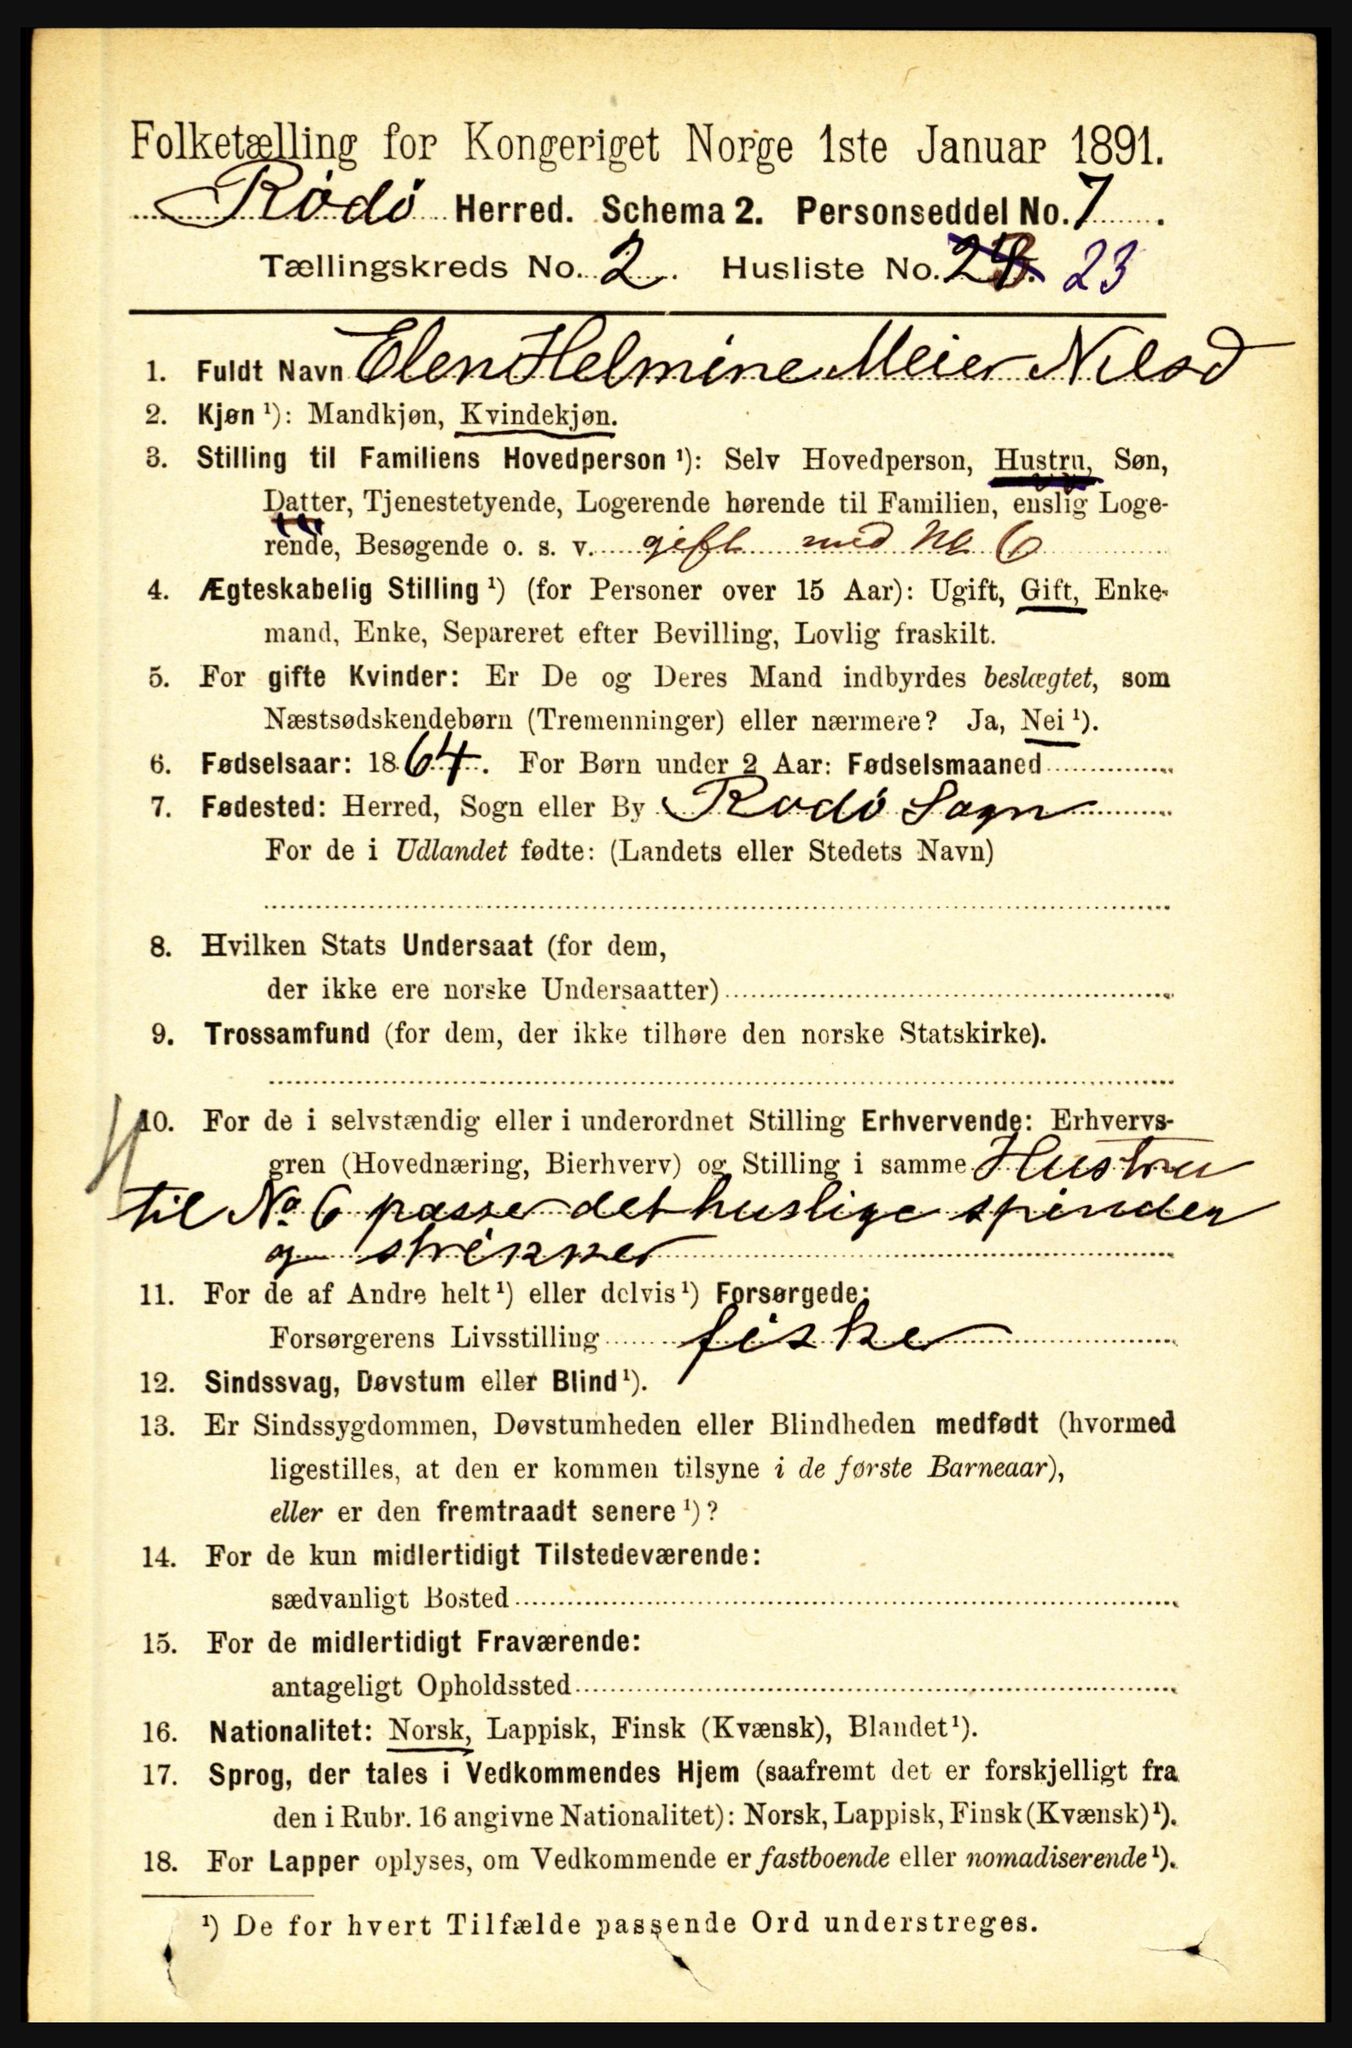 Folketælling for Kongeriget Norge 1ste Januar 1891.
Rödö Herred. Schema 2. Personseddel No. 7.
Tællingskreds No. 2. Husliste No. 24. 23
1. Fuldt Navn Elen Helmine Meier Nilsd
2. Kjøn ¹): Mandkjøn, Kvindekjøn.
3. Stilling til Familiens Hovedperson ¹): Selv Hovedperson, Hustru, Søn,
Datter, Tjenestetyende, Logerende hørende til Familien, enslig Loge-
rende, Besøgende o. s. v. gift med No 6
4. Ægteskabelig Stilling ¹) (for Personer over 15 Aar): Ugift, Gift, Enke-
mand, Enke, Separeret efter Bevilling, Lovlig fraskilt.
5. For gifte Kvinder: Er De og Deres Mand indbyrdes beslægtet, som
Næstsødskendebørn (Tremenninger) eller nærmere? Ja, Nei ¹).
6. Fødselsaar: 1864. For Børn under 2 Aar: Fødselsmaaned
7. Fødested: Herred, Sogn eller By Rodö Sogn
For de i Udlandet fødte: (Landets eller Stedets Navn)
8. Hvilken Stats Undersaat (for dem,
der ikke ere norske Undersaatter)
9. Trossamfund (for dem, der ikke tilhøre den norske Statskirke).
10. For de i selvstændig eller i underordnet Stilling Erhvervende: Erhvervs-
gren (Hovednæring, Bierhverv) og Stilling i samme Hustru
til No 6 passe det huslige spinder
og strikker
11. For de af Andre helt ¹) eller delvis ¹) Forsørgede:
Forsørgerens Livsstilling fisker
12. Sindssvag, Døvstum eller Blind ¹).
13. Er Sindssygdommen, Døvstumheden eller Blindheden medfødt (hvormed
ligestilles, at den er kommen tilsyne i de første Barneaar),
eller er den fremtraadt senere ¹)?
14. For de kun midlertidigt Tilstedeværende:
sædvanligt Bosted
15. For de midlertidigt Fraværende:
antageligt Opholdssted
16. Nationalitet: Norsk, Lappisk, Finsk (Kvænsk), Blandet ¹).
17. Sprog, der tales i Vedkommendes Hjem (saafremt det er forskjelligt fra
den i Rubr. 16 angivne Nationalitet): Norsk, Lappisk, Finsk (Kvænsk) ¹).
18. For Lapper oplyses, om Vedkommende er fastboende eller nomadiserende ¹).
¹) De for hvert Tilfælde passende Ord understreges.